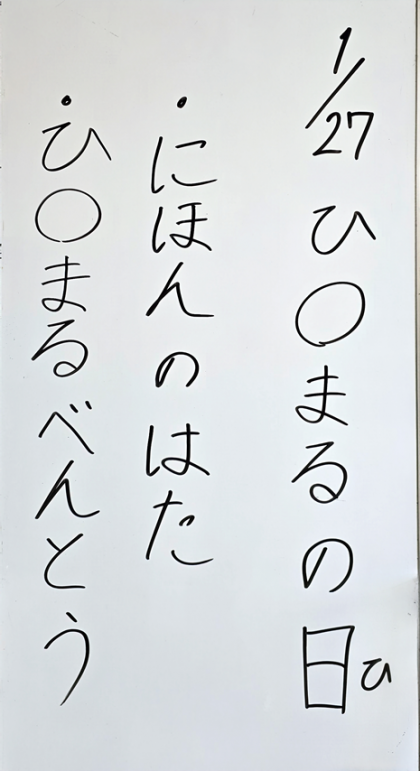 1/27 ひ〇まるの日
ひ
・にほんのはた
・ひ〇まるべんとう